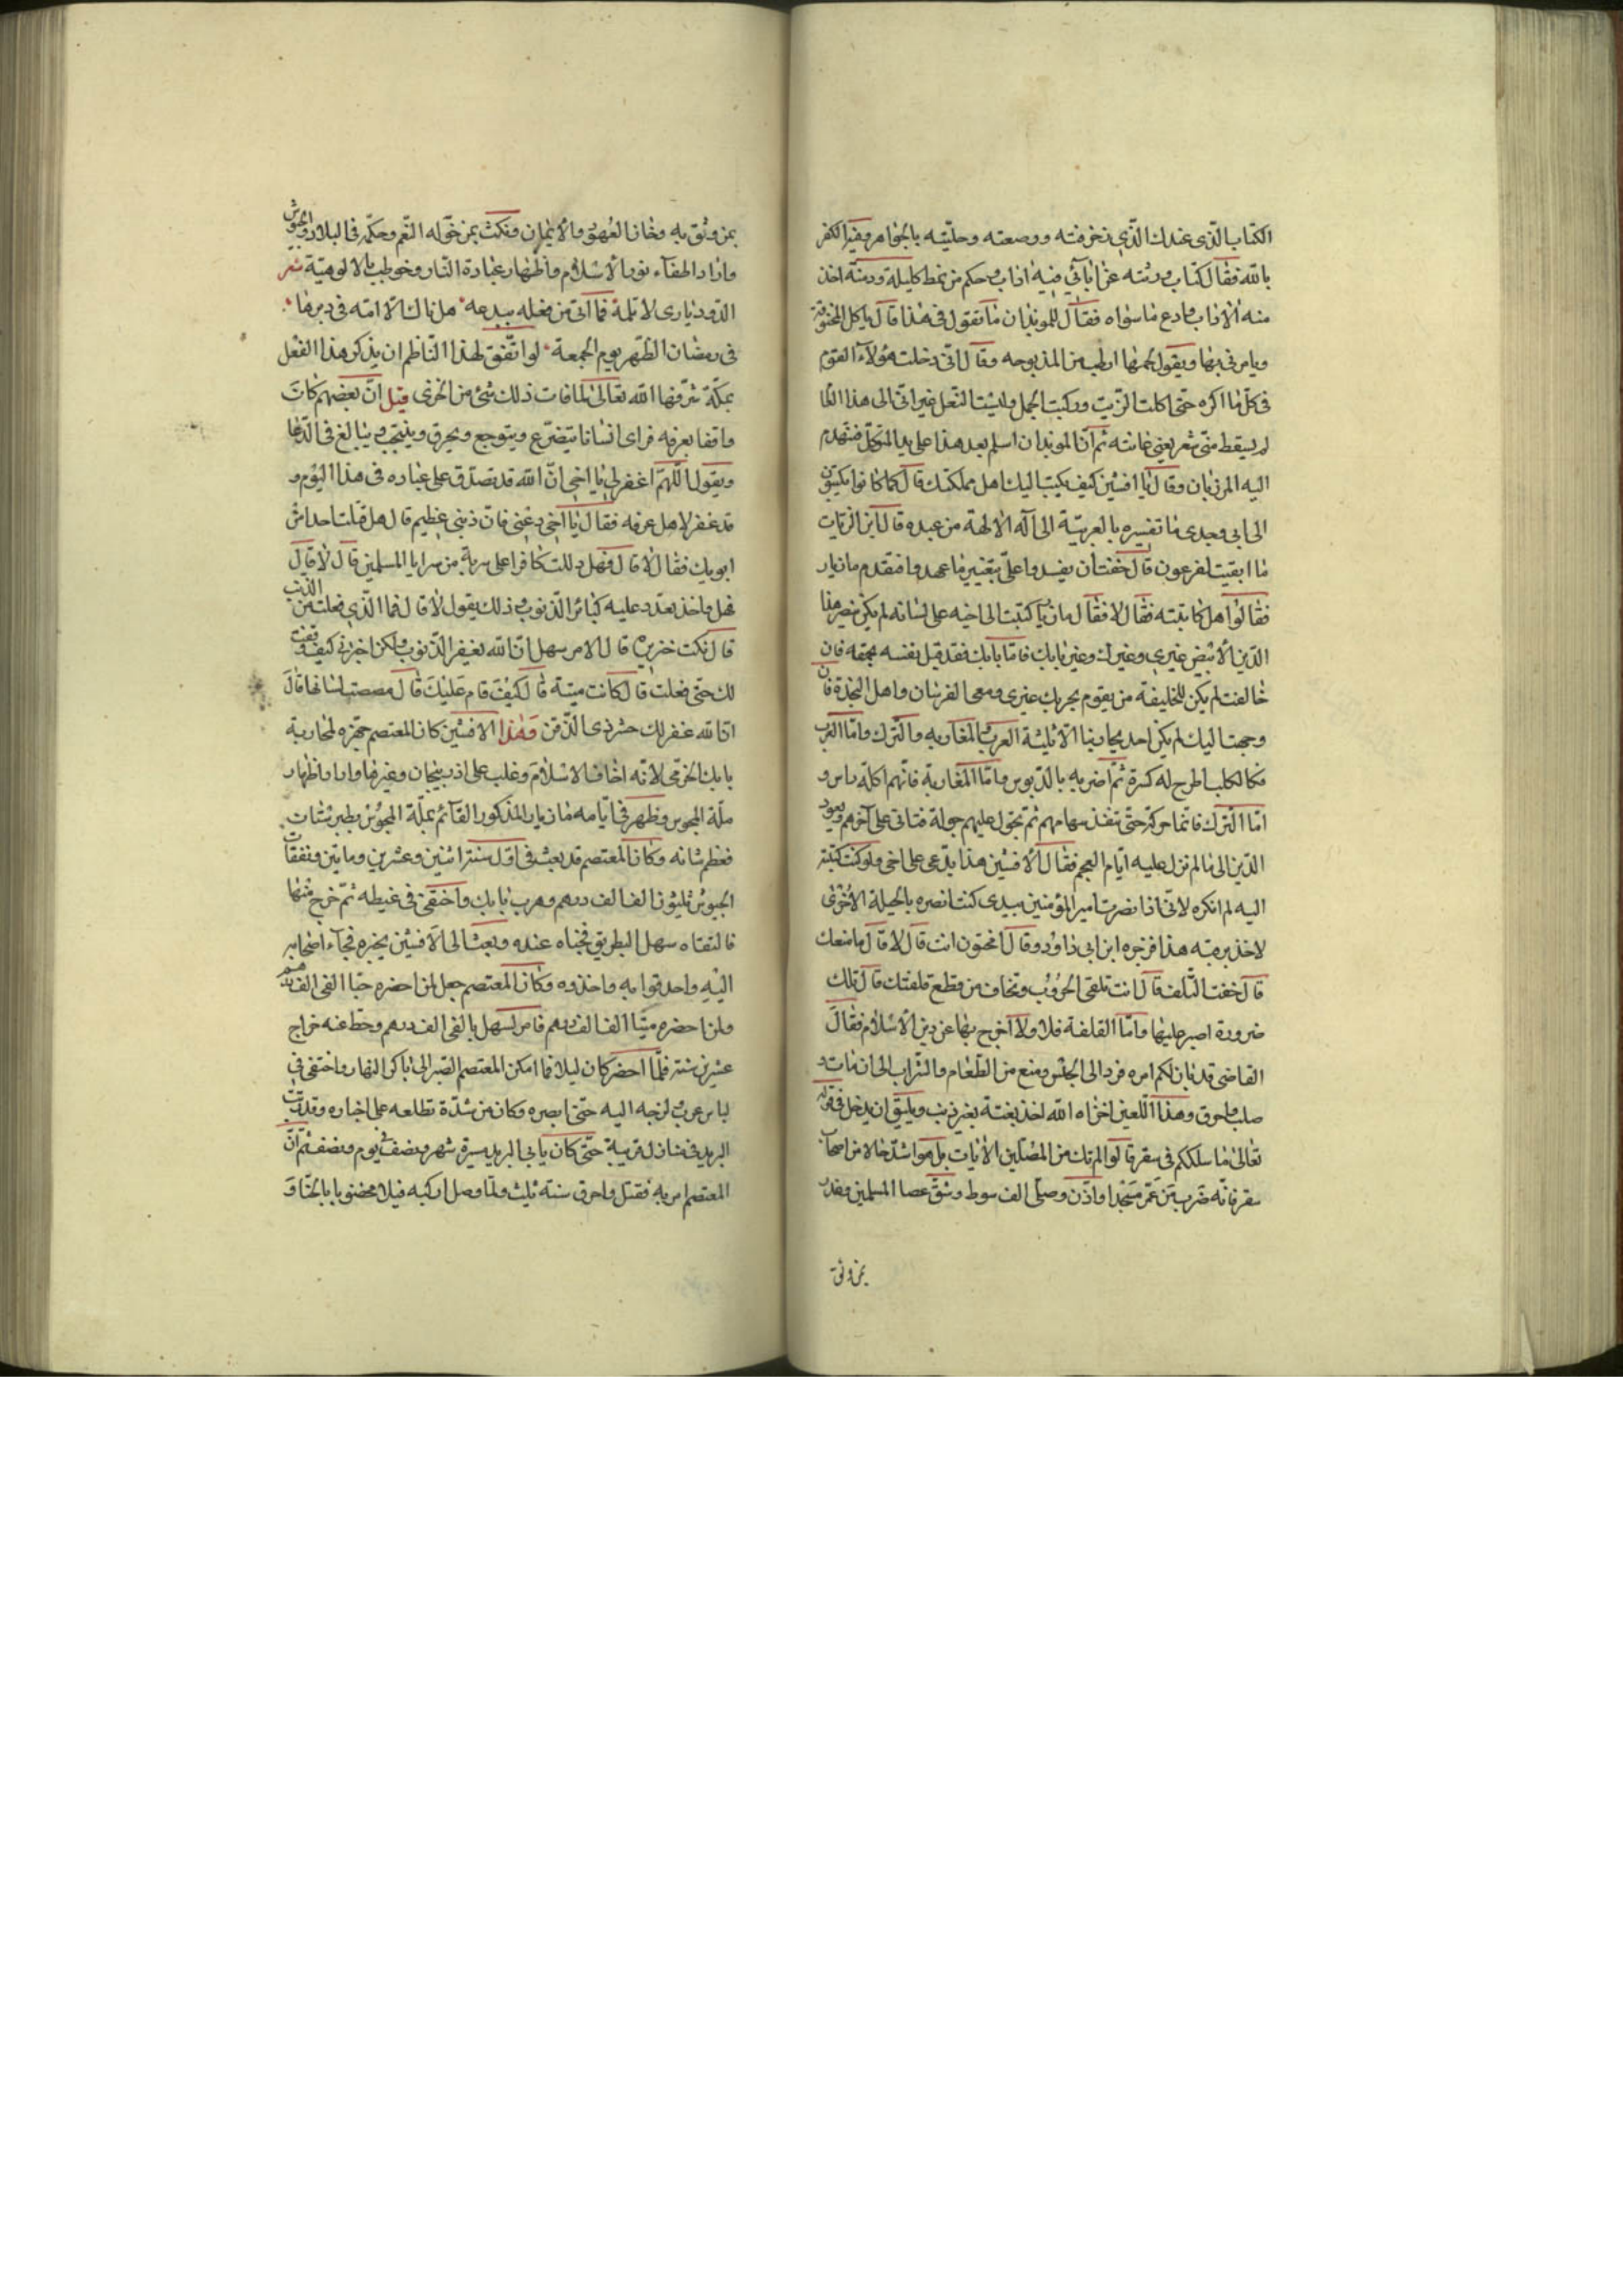 الكتاب الذى عندك الذى زخرفته ورصعته وحليته بالجواهر وفيه الكفر
بالله فقال كتاب ورثته عن ابائى فيه اداب وحكم من نمط كليلة ودمنة اخذ
منه الاداب وادع ما سواه فقال للموبذان ما تقول فى هذا قال ياكل المخنوقة
ويامرنى بها ويقول لحمها ارطب من المذبوحه وقال انى دخلت هؤلاء القوم
فى كل ما اكره حتى اكلت الزيت وركبت الجمل ولبست النعل غير انى الى هذا العام
لم يسقط منى شعر يعنى عانته ثم ان الموبذان اسلم بعد هذا على يد المتوكل فتقدم
اليه المرزبان وقال يا افشين كيف يكتب اليك اهل مملكتك قال كما كانوا يكتبون
الى ابى وجدى ما تفسيره بالعربية الى آله الالهة من عبده قال ابن الزيات
ما ابقيت لفرعون قال خفت ان يفسدوا على بتغيير ما عهدوا فتقدم مازيار
فقالوا هل كاتبته فقال لا فقال مازيار كتبت الى اخيه على لسانه لم يكن ينصر هذا
الدين الابيض غيرى وغيرك وغير بابك فاما بابك فقد قتل نفسه بحمقه فان
خالفت لم يكن للخليفة من يقوم بحربك غيرى ومعى الفرسان واهل النجدة فان
وجهت اليك لم يكن احد يحاربنا الا ثلثة العرب والمغاربه والترك واما العرب
فكالكلب اطرح له كسرة ثم اضربه بالدبوس واما المغاربة فانهم اكلة راس و
اما الترك فانما هى كرة حتى تنفذ سهامهم ثم تجول عليهم جولة فتاتى على آخرهم ويعود
الدين الى ما لم تزل عليه ايام العجم فقال الافشين هذا يدعى على اخى ولو كنت كتبته
اليه لم انكره لانى اذا نصرت امير المؤمنين بيدى كنت انصره بالحيلة الاخرى
لاخذ برقبته هذا فزجره ابن ابى داود وقال امختون انت قال لا قال ما منعك
قال خفت التلف قال انت تلقى الحروب وتخاف من قطع قلفتك قال تلك
ضرورة اصبر عليها واما القلفة فلا ولا اخرج بها عن دين الاسلام فقال
القاضى قد بان لكم امره فرد الى الحبس ومنع من الطعام والشراب الى ان مات و
صلب واحرق وهذا اللعين اخزاه الله اخذ بغتة بغير ذنب ويليق ان يدخل فى قوله
تعالى ما سلككم فى سقر قالوا لم نك من المصلين الآيات بل هو اشد حالا من اصحاب
سقر فانه ضرب من عمر مسجدا واذن وصلى الف سوط وشق عصا المسلمين وغدر
بمن وثق
بمن وثق به وخان العهود والايمان ونكث بمن خوله النعم وحكمه فى البلاد والجيوش
واراد اطفاء نور الاسلام واظهار عبادة النار وخوطب بالالوهية شعر
الدود يارى لا تلمه فما اتى من فعله ببدعه هل ناك الا امته فى دبرها
فى رمضان الظهر يوم الجمعة لو اتفق لهذا الناظم ان يذكر هذا الفعل
بمكة شرفها الله تعالى لما فات ذلك شئ من الخزى قيل ان بعضهم كان
واقفا بعرفه فراى انسانا يتضرع ويتوجع ويحرق وينتحب ويبالغ فى الدعا
ويقول اللهم اغفر لى يا اخى ان الله قد تصدق على عباده فى هذا اليوم و
قد غفر لاهل عرفه فقال يا اخى دعنى فان ذنبى عظيم قال هل قتلت احدا من
ابويك فقال لا قال فهل دللت كافرا على سرية من سرايا المسلمين قال لا قال
فهل واخذ يعدد عليه كبائر الذنوب وذلك يقول لا قال فما الذى فعلت من الذنب
قال نكت خنزيرة قال الامر سهل ان الله يغفر الذنوب ولكن اخبرنى كيف وقفت
لك حتى فعلت قال كانت ميتة قال كيف قام عليك قال مصصت لسانها قال
ان الله غفر لك حشرنى الذقن وهذا الافشين كان المعتصم جهزه لمحاربة
بابك الخرمى لانه اخاف الاسلام وغلب على اذربيجان وغيرها واراد اظهار
ملة المجوس وظهر فى ايامه مازيار المذكور القائم بملة المجوس بطبرستان
فعظم شانه وكان المعتصم قد بعث فى اول سنة اثنين وعشرين ومايتين ونفقات
الجيوش ثليثون الف الف درهم وهرب بابك واختفى فى غيطه ثم خرج منها
فالتقاه سهل البطريق فخباه عنده وبعث الى الافشين يخبره فجاء اصحابه
اليه واحدقوا به واخذوه وكان المعتصم جعل لمن احضره حيا الفى الف درهم
ولمن احضره ميتا الف الف درهم فامر لسهل بالفى الف درهم وحط عنه خراج
عشرين سنة فلما احضر كان ليلا فما امكن المعتصم الصبر الى باكر النهار واختفى فى
لباس عربى لخرجه اليه حتى ابصره وكان من شدة تطلعه على اخباره وقد رتب
البريد فى منازل قريبة حتى كان ياتى البريد مسيرة شهر ونصف فى يوم ونصف ثم ان
المعتصم امر به فقتل واحرق سنة ثلث ولما وصل اركبه فيلا مخضوبا بالحنا و